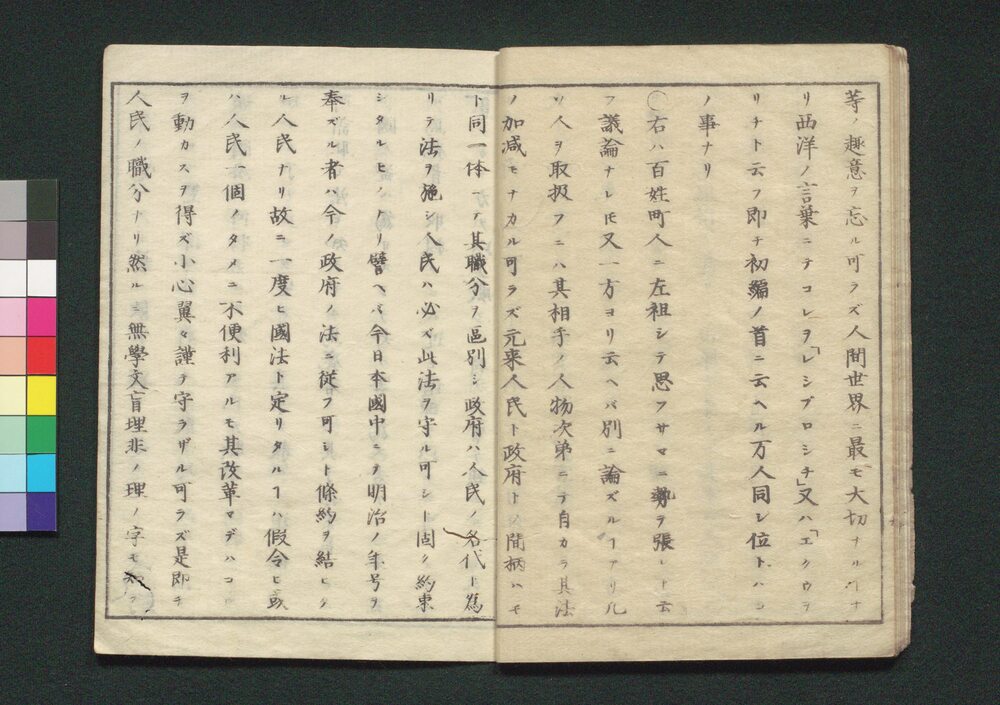 等ノ趣意ヲ忘ル可ラズ人間世界ニ最モ大切ナル
リ西洋ノ言葉ニテコレヲ「レシプロシチ」又ハ「エクウヲ
リチト云フ即チ初編ノ首ニ云ヘル万人同シ位トハ
ノ事ナリ
〇右ハ百姓町人ニ左袒シテ思フサマニ勢ヲ張レト云
フ議論ナレ𪜈又一方ヨリ云ヘバ別ニ論ズルヿアリ凡
ソ人ヲ取扱フニハ其相手ノ人物次第ニテ自カラ其法
ノ加减モナカル可ラズ元来人民ト政府トノ間柄ハモ
ト同一体ニテ其職分ヲ區別シ政府ハ人民ノ名代ト為
リテ法ヲ施シ人民ハ必ズ此法ヲ守ル可シト固ク約束
シタルモノナリ譬ヘバ今日本國中ニテ明治ノ年号ヲ
奉ズル者ハ今ノ政府ノ法ニ從フ可シト條約ヲ結ヒタ
ル人民ナリ故ニ一度ヒ國法ト定リタルヿハ假令ヒ或
ハ人民一個ノタメニ不便利アルモ其改革マデハコレ
ヲ動カスヲ得ズ小心翼々謹テ守ラザル可ラズ是即チ
人民ノ職分ナリ然ルニ無學文盲理非ノ理ノ字モ知ラ